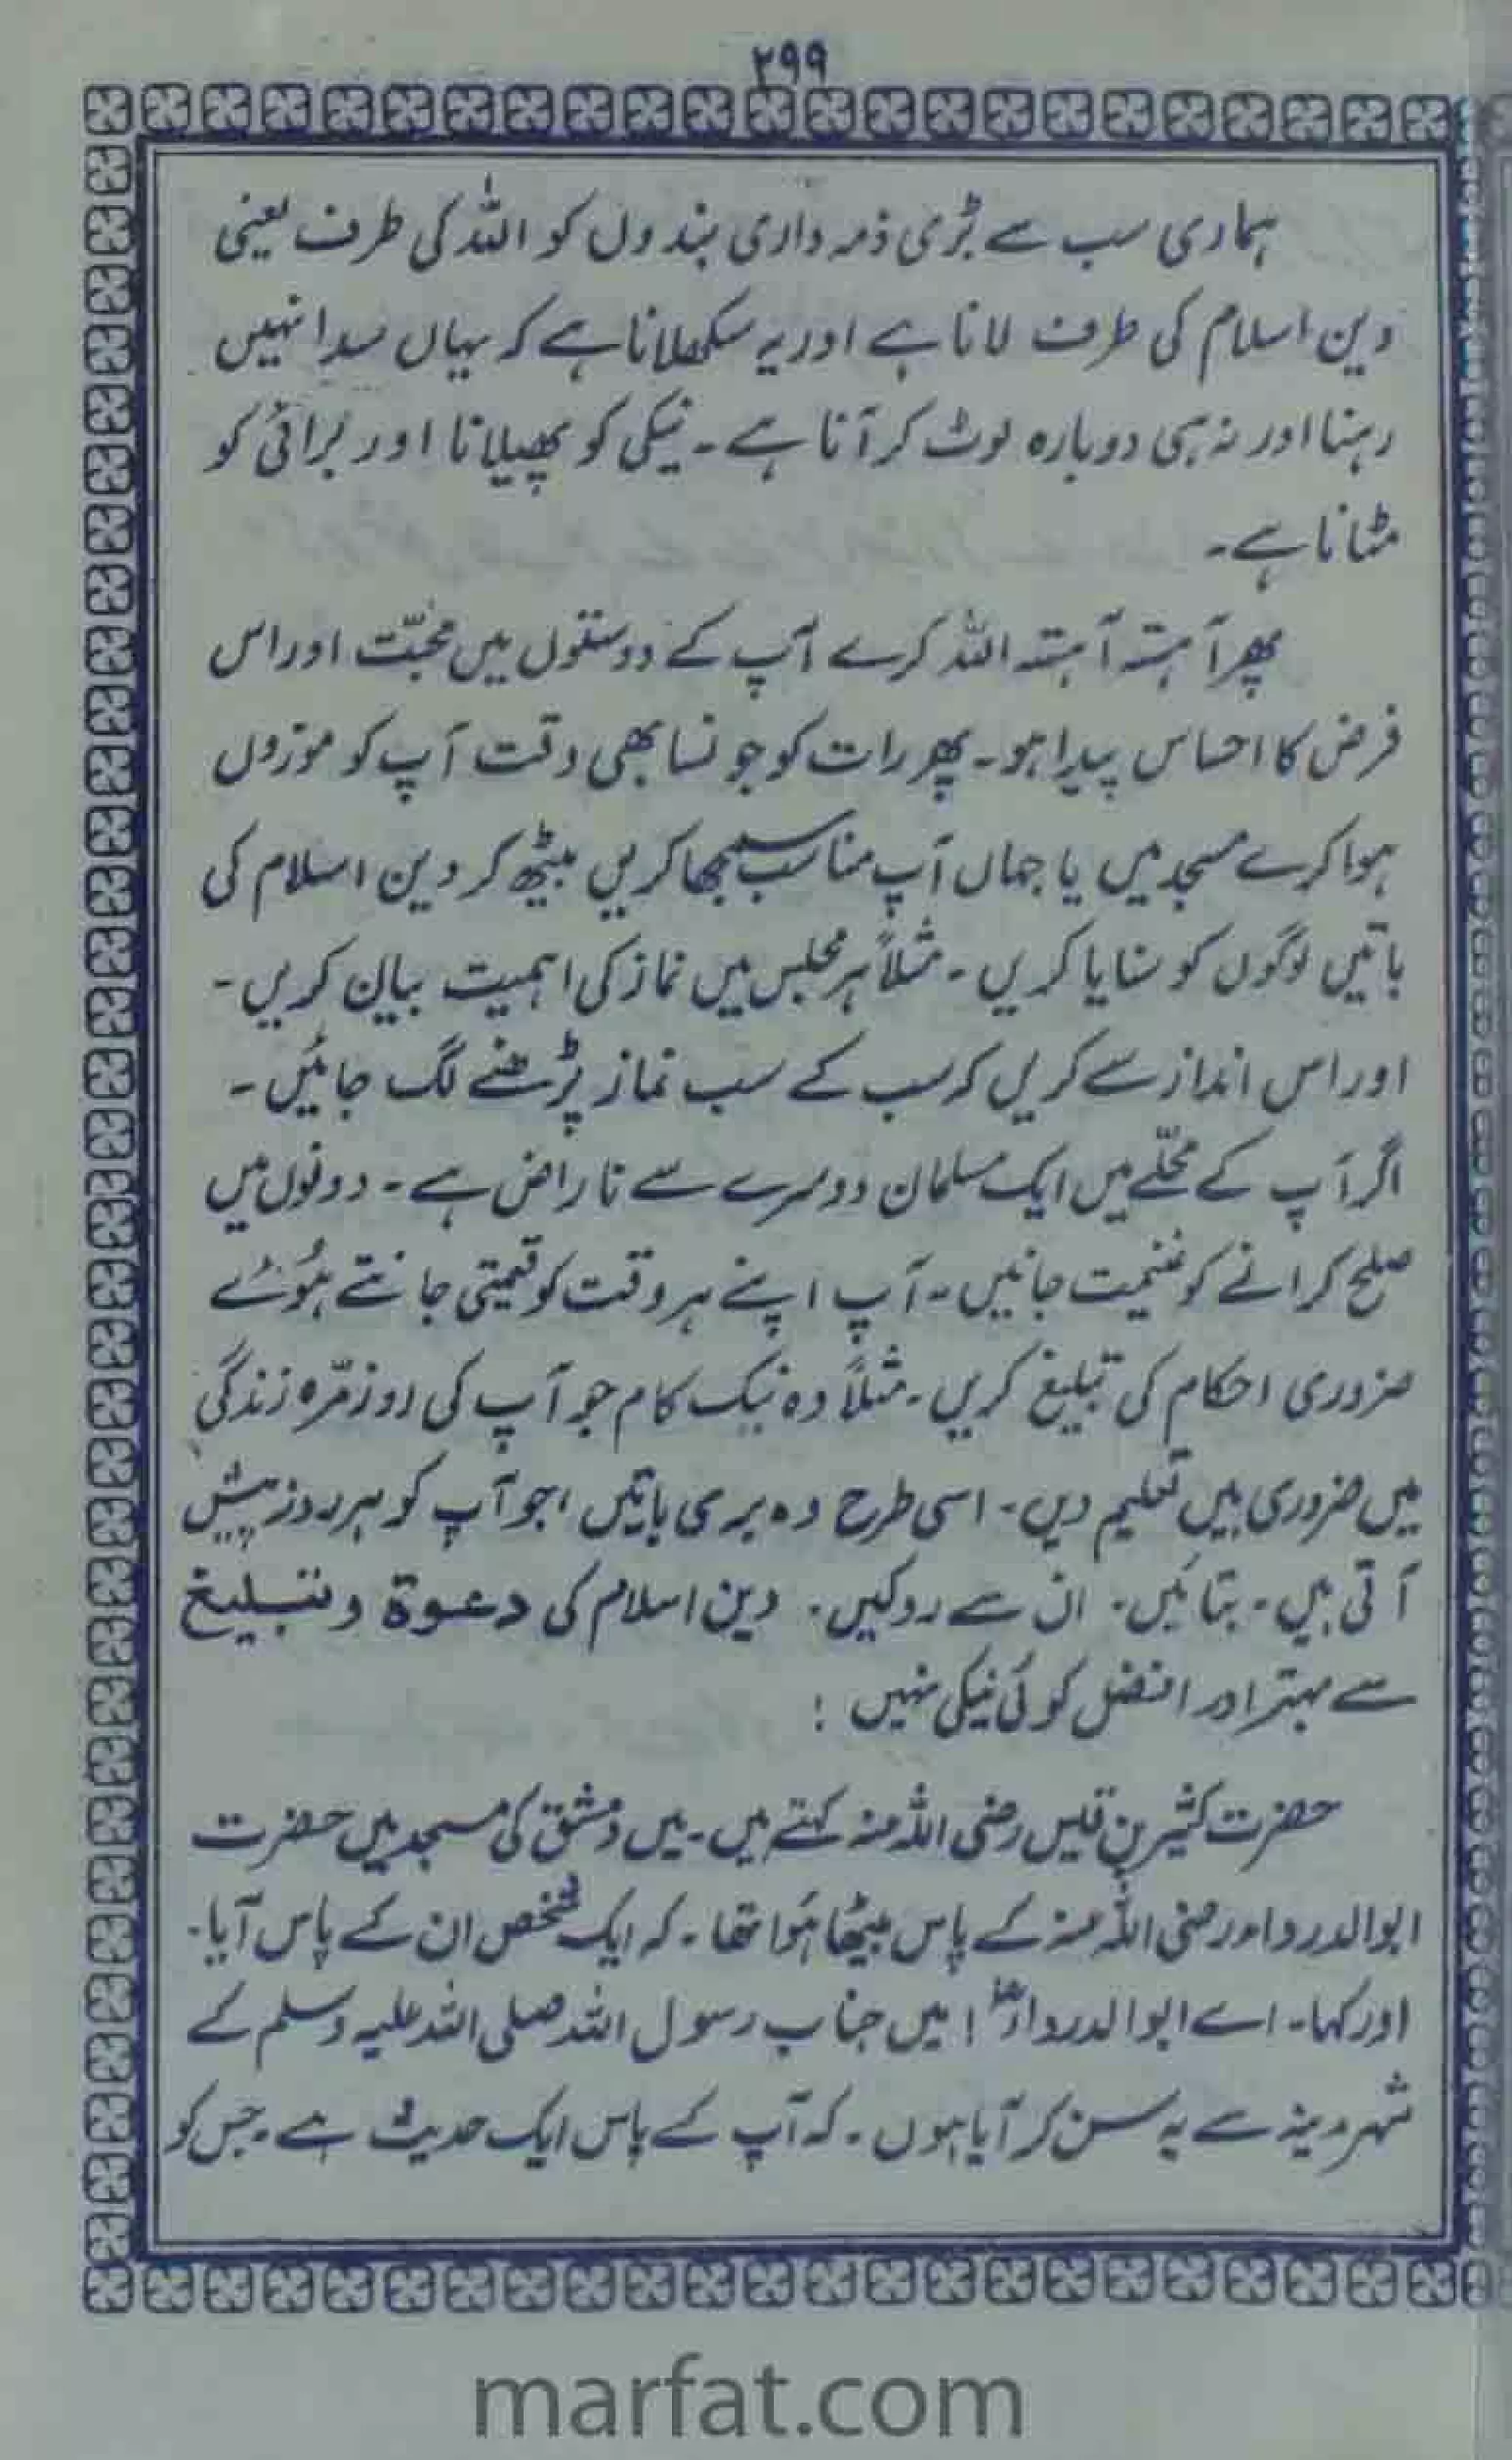 ۲۹۹
ہماری سب سے بڑی ذمہ داری بندوں کو اللہ کی طرف یعنی
دین اسلام کی طرف لانا ہے اور یہ سکھلانا ہے کہ یہاں سدا نہیں
رہنا اور نہ ہی دوبارہ لوٹ کر آنا ہے۔ نیکی کو پھیلانا اور برائی کو
مٹانا ہے۔
پھر آہستہ آہستہ اللہ کرے آپ کے دوستوں میں محبّت اور اس
فرض کا احساس پیدا ہو۔ پھر رات کو جونسا بھی وقت آپ کو موزوں
ہوا کرے مسجد میں یا جہاں آپ مناسب سمجھا کریں بیٹھ کر دین اسلام کی
باتیں لوگوں کو سنایا کریں۔ مثلاً ہر مجلس میں نماز کی اہمیت بیان کریں۔
اور اس انداز سے کریں کہ سب کے سب نماز پڑھنے لگ جائیں۔
اگر آپ کے محلّے میں ایک مسلمان دوسرے سے ناراض ہے۔ دونوں میں
صلح کرانے کو غنیمت جانیں۔ آپ اپنے ہر وقت کو قیمتی جانتے ہُوئے
ضروری احکام کی تبلیغ کریں۔ مثلاً وہ نیک کام جو آپ کی روزمّرہ زندگی
میں ضروری ہیں تعلیم دیں۔ اسی طرح وہ بری باتیں، جو آپ کو ہر روز پیش
آتی ہیں۔ بتائیں۔ ان سے روکیں۔ دین اسلام کی دعوۃ و تبلیغ
سے بہتر اور افضل کوئی نیکی نہیں :
حضرت کثیر بن قیس رضی اللہ عنہ کہتے ہیں۔ میں دمشق کی مسجد میں حضرت
ابوالدرداء رضی اللہ عنہ کے پاس بیٹھا ہُوا تھا۔ کہ ایک شخص ان کے پاس آیا۔
اور کہا۔ اے ابوالدرداءؓ! میں جناب رسول اللہ صلی اللہ علیہ وسلم کے
شہر مدینہ سے یہ سن کر آیا ہوں۔ کہ آپ کے پاس ایک حدیث ہے۔ جس کو
marfat.com